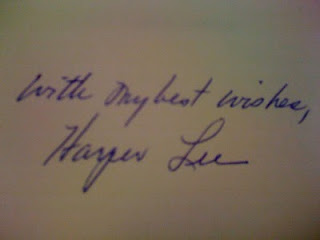 with my best wishes,
Harper Lee